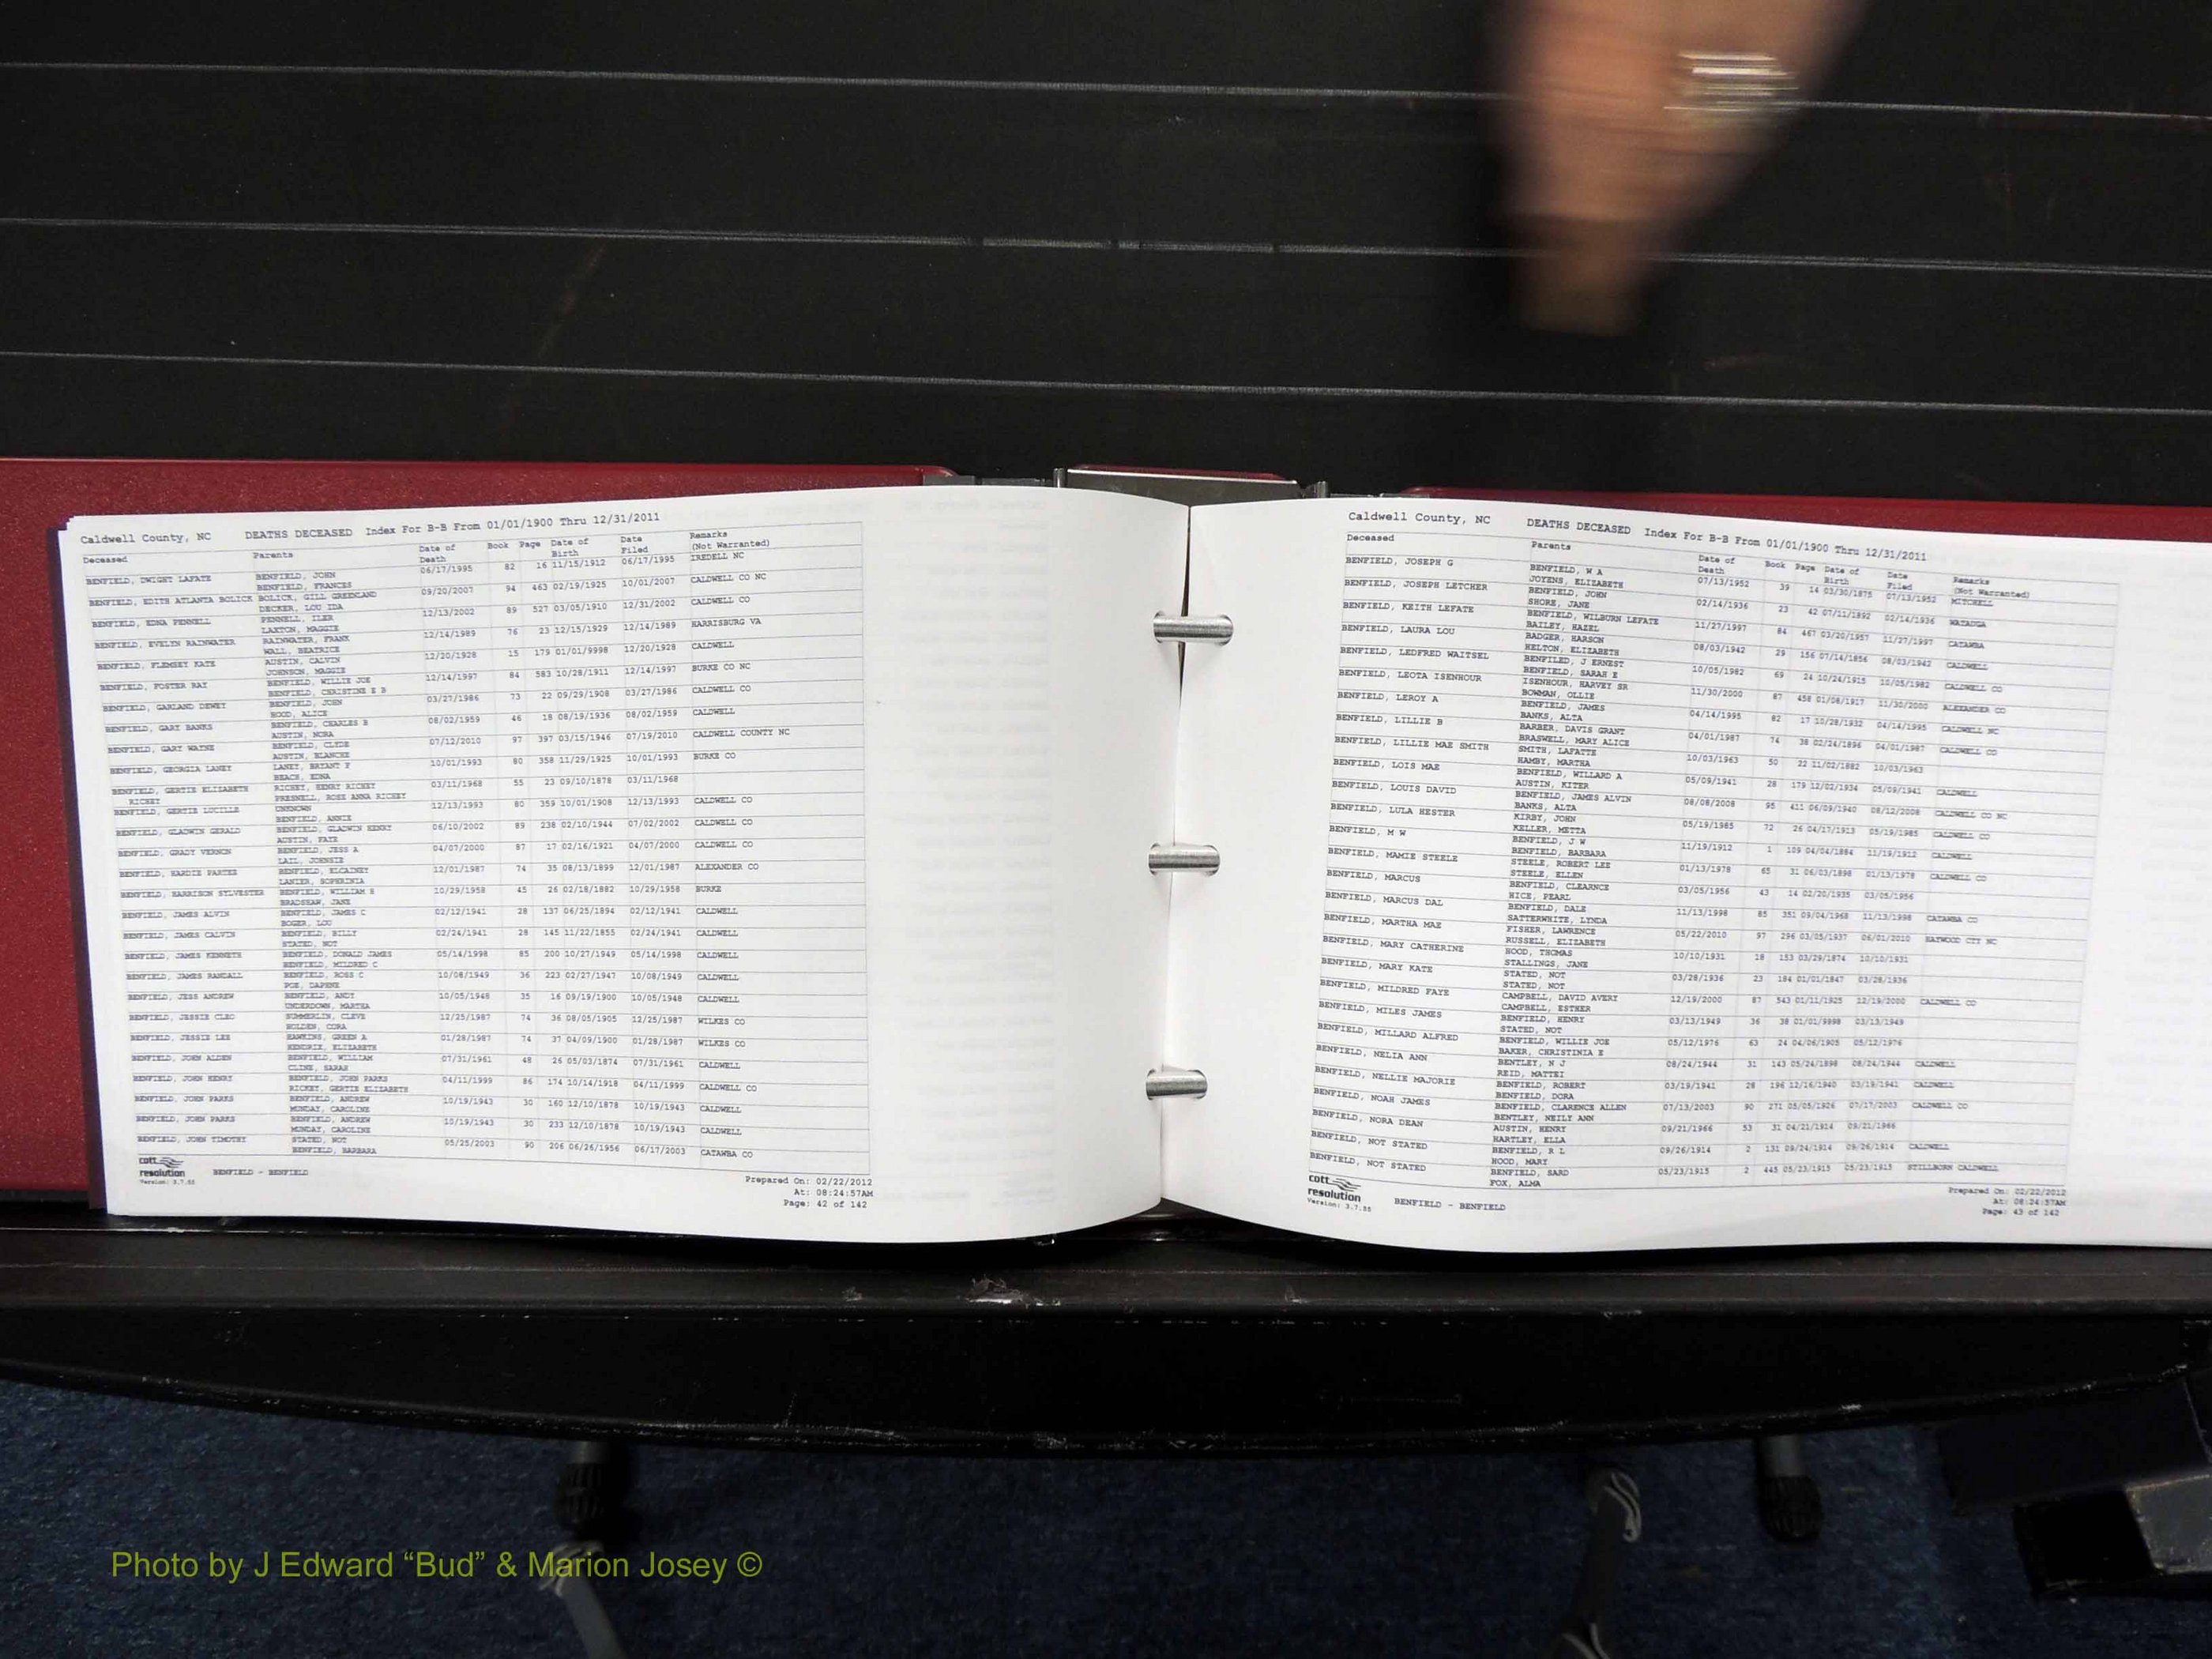 Caldwell County, NC DEATHS DECEASED Index For B-B From 01/01/1900 Thru 12/31/2011
Deceased Parents Date of Death Book Page Date of Birth Date Filed Remarks (Not Warranted)
BENFIELD, DWIGHT LAFATE BENFIELD, JOHN 06/17/1995 82 16 11/15/1912 06/17/1995 IREDELL NC
BENFIELD, FRANCES
BENFIELD, EDITH ATLANTA BOLICK BOLICK, GILL GREENLAND 09/20/2007 94 463 02/19/1925 10/01/2007 CALDWELL CO NC
DECKER, LOU IDA
BENFIELD, EDNA PENNELL PENNELL, ILER 12/13/2002 89 527 03/05/1910 12/31/2002 CALDWELL CO
LAXTON, MAGGIE
BENFIELD, EVELYN RAINWATER RAINWATER, FRANK 12/14/1989 76 23 12/15/1929 12/14/1989 HARRISBURG VA
WALL, BEATRICE
BENFIELD, FLEMSEY KATE AUSTIN, CALVIN 12/20/1928 15 179 01/01/9998 12/20/1928 CALDWELL
JOHNSON, MAGGIE
BENFIELD, FOSTER RAY BENFIELD, WILLIE JOE 12/14/1997 84 583 10/28/1911 12/14/1997 BURKE CO NC
BENFIELD, CHRISTINE E B
BENFIELD, GARLAND DEWEY BENFIELD, JOHN 03/27/1986 73 22 09/29/1908 03/27/1986 CALDWELL CO
HOOD, ALICE
BENFIELD, GARY BANKS BENFIELD, CHARLES B 08/02/1959 46 18 08/19/1936 08/02/1959 CALDWELL
AUSTIN, NORA
BENFIELD, GARY WAYNE BENFIELD, CLYDE 07/12/2010 97 397 03/15/1946 07/19/2010 CALDWELL COUNTY NC
AUSTIN, BLANCHE
BENFIELD, GEORGIA LANEY LANEY, BRYANT F 10/01/1993 80 358 11/29/1925 10/01/1993 BURKE CO
BEACH, EDNA
BENFIELD, GERTIE ELIZABETH RICHEY, HENRY RICHEY 03/11/1968 55 23 09/10/1878 03/11/1968
RICHEY PRESNELL, ROSE ANNA RICHEY
BENFIELD, GERTIE LUCILLE UNKNOWN 12/13/1993 80 359 10/01/1908 12/13/1993 CALDWELL CO
BENFIELD, ANNIE
BENFIELD, GLADWIN GERALD BENFIELD, GLADWIN HENRY 06/10/2002 89 238 02/10/1944 07/02/2002 CALDWELL CO
AUSTIN, FAYE
BENFIELD, GRADY VERNON BENFIELD, JESS A 04/07/2000 87 17 02/16/1921 04/07/2000 CALDWELL CO
LAIL, JOHNSIE
BENFIELD, HARDIE PARTEE BENFIELD, ELCAINEY 12/01/1987 74 35 08/13/1899 12/01/1987 ALEXANDER CO
LANIER, SOPHRINIA
BENFIELD, HARRISON SYLVESTER BENFIELD, WILLIAM H 10/29/1958 45 26 02/18/1882 10/29/1958 BURKE
BRADSHAW, JANE
BENFIELD, JAMES ALVIN BENFIELD, JAMES C 02/12/1941 28 137 06/25/1894 02/12/1941 CALDWELL
BOGER, LOU
BENFIELD, JAMES CALVIN BENFIELD, BILLY 02/24/1941 28 145 11/22/1855 02/24/1941 CALDWELL
STATED, NOT
BENFIELD, JAMES KENNETH BENFIELD, DONALD JAMES 05/14/1998 85 200 10/27/1949 05/14/1998 CALDWELL
BENFIELD, MILDRED C
BENFIELD, JAMES RANDALL BENFIELD, ROSS C 10/08/1949 36 223 02/27/1947 10/08/1949 CALDWELL
POE, DAPHNE
BENFIELD, JESS ANDREW BENFIELD, ANDY 10/05/1948 35 16 09/19/1900 10/05/1948 CALDWELL
UNDERDOWN, MARTHA
BENFIELD, JESSIE CLEO SUMMERLIN, CLEVE 12/25/1987 74 36 08/05/1905 12/25/1987 WILKES CO
HOLDEN, CORA
BENFIELD, JESSIE LEE HAWKINS, GREEN A 01/28/1987 74 37 04/09/1900 01/28/1987 WILKES CO
HENDRIX, ELIZABETH
BENFIELD, JOHN ALDEN BENFIELD, WILLIAM 07/31/1961 48 26 05/03/1874 07/31/1961 CALDWELL
CLINE, SARAH
BENFIELD, JOHN HENRY BENFIELD, JOHN PARKS 04/11/1999 86 174 10/14/1918 04/11/1999 CALDWELL CO
RICHEY, GERTIE ELIZABETH
BENFIELD, JOHN PARKS BENFIELD, ANDREW 10/19/1943 30 160 12/10/1878 10/19/1943 CALDWELL
MUNDAY, CAROLINE
BENFIELD, JOHN PARKS BENFIELD, ANDREW 10/19/1943 30 233 12/10/1878 10/19/1943 CALDWELL
MUNDAY, CAROLINE
BENFIELD, JOHN TIMOTHY STATED, NOT 05/25/2003 90 206 06/26/1956 06/17/2003 CATAWBA CO
BENFIELD, BARBARA
cott resolution
Version: 3.7.55
BENFIELD - BENFIELD
Prepared On: 02/22/2012
At: 08:24:57AM
Page: 42 of 142
Caldwell County, NC DEATHS DECEASED Index For B-B From 01/01/1900 Thru 12/31/2011
Deceased Parents Date of Death Book Page Date of Birth Date Filed Remarks (Not Warranted)
BENFIELD, JOSEPH G BENFIELD, W A 07/13/1952 39 14 03/30/1875 07/13/1952 MITCHELL
JOYENS, ELIZABETH
BENFIELD, JOSEPH LETCHER BENFIELD, JOHN 02/14/1936 23 42 07/11/1892 02/14/1936 WATAUGA
SHORE, JANE
BENFIELD, KEITH LEFATE BENFIELD, WILBURN LEFATE 11/27/1997 84 467 03/20/1957 11/27/1997 CATAWBA
BAILEY, HAZEL
BENFIELD, LAURA LOU BADGER, HARSON 08/03/1942 29 156 07/14/1856 08/03/1942 CALDWELL
HELTON, ELIZABETH
BENFIELD, LEDFRED WAITSEL BENFILED, J ERNEST 10/05/1982 69 24 10/24/1915 10/05/1982 CALDWELL CO
BENFIELD, SARAH E
BENFIELD, LEOTA ISENHOUR ISENHOUR, HARVEY SR 11/30/2000 87 458 01/08/1917 11/30/2000 ALEXANDER CO
BOWMAN, OLLIE
BENFIELD, LEROY A BENFIELD, JAMES 04/14/1995 82 17 10/28/1932 04/14/1995 CALDWELL NC
BANKS, ALTA
BENFIELD, LILLIE B BARBER, DAVIS GRANT 04/01/1987 74 38 02/24/1896 04/01/1987 CALDWELL CO
BRASWELL, MARY ALICE
BENFIELD, LILLIE MAE SMITH SMITH, LAFATTE 10/03/1963 50 22 11/02/1882 10/03/1963
HAMBY, MARTHA
BENFIELD, LOIS MAE BENFIELD, WILLARD A 05/09/1941 28 179 12/02/1934 05/09/1941 CALDWELL
AUSTIN, KITER
BENFIELD, LOUIS DAVID BENFIELD, JAMES ALVIN 08/08/2008 95 411 06/09/1940 08/12/2008 CALDWELL CO NC
BANKS, ALTA
BENFIELD, LULA HESTER KIRBY, JOHN 05/19/1985 72 26 04/17/1913 05/19/1985 CALDWELL CO
KELLER, METTA
BENFIELD, M W BENFIELD, J W 11/19/1912 1 109 04/04/1884 11/19/1912 CALDWELL
BENFIELD, BARBARA
BENFIELD, MAMIE STEELE STEELE, ROBERT LEE 01/13/1978 65 31 06/03/1898 01/13/1978 CALDWELL CO
STEELE, ELLEN
BENFIELD, MARCUS BENFIELD, CLEARNCE 03/05/1956 43 14 02/20/1935 03/05/1956
HICE, PEARL
BENFIELD, MARCUS DAL BENFIELD, DALE 11/13/1998 85 351 09/04/1968 11/13/1998 CATAWBA CO
SATTERWHITE, LYNDA
BENFIELD, MARTHA MAE FISHER, LAWRENCE 05/22/2010 97 296 03/05/1937 06/01/2010 HAYWOOD CTY NC
RUSSELL, ELIZABETH
BENFIELD, MARY CATHERINE HOOD, THOMAS 10/10/1931 18 153 03/29/1874 10/10/1931
STALLINGS, JANE
BENFIELD, MARY KATE STATED, NOT 03/28/1936 23 184 01/01/1847 03/28/1936
STATED, NOT
BENFIELD, MILDRED FAYE CAMPBELL, DAVID AVERY 12/19/2000 87 543 01/11/1925 12/19/2000 CALDWELL CO
CAMPBELL, ESTHER
BENFIELD, MILES JAMES BENFIELD, HENRY 03/13/1949 36 38 01/01/9998 03/13/1949
STATED, NOT
BENFIELD, MILLARD ALFRED BENFIELD, WILLIE JOE 05/12/1976 63 24 04/06/1905 05/12/1976
BAKER, CHRISTINIA E
BENFIELD, NELIA ANN BENTLEY, N J 08/24/1944 31 143 05/24/1898 08/24/1944 CALDWELL
REID, MATTEI
BENFIELD, NELLIE MAJORIE BENFIELD, ROBERT 03/19/1941 28 196 12/16/1940 03/19/1941 CALDWELL
BENFIELD, DORA
BENFIELD, NOAH JAMES BENFIELD, CLARENCE ALLEN 07/13/2003 90 271 05/05/1926 07/17/2003 CALDWELL CO
BENTLEY, NEILY ANN
BENFIELD, NORA DEAN AUSTIN, HENRY 09/21/1966 53 31 04/21/1914 09/21/1966
HARTLEY, ELLA
BENFIELD, NOT STATED BENFIELD, R L 09/26/1914 2 131 09/24/1914 09/26/1914 CALDWELL
HOOD, MARY
BENFIELD, NOT STATED BENFIELD, SARD 05/23/1915 2 445 05/23/1915 05/23/1915 STILLBORN CALDWELL
FOX, ALMA
cott resolution
Version: 3.7.55
BENFIELD - BENFIELD
Prepared On: 02/22/2012
At: 08:24:57AM
Page: 43 of 142
Photo by J Edward “Bud” & Marion Josey ©